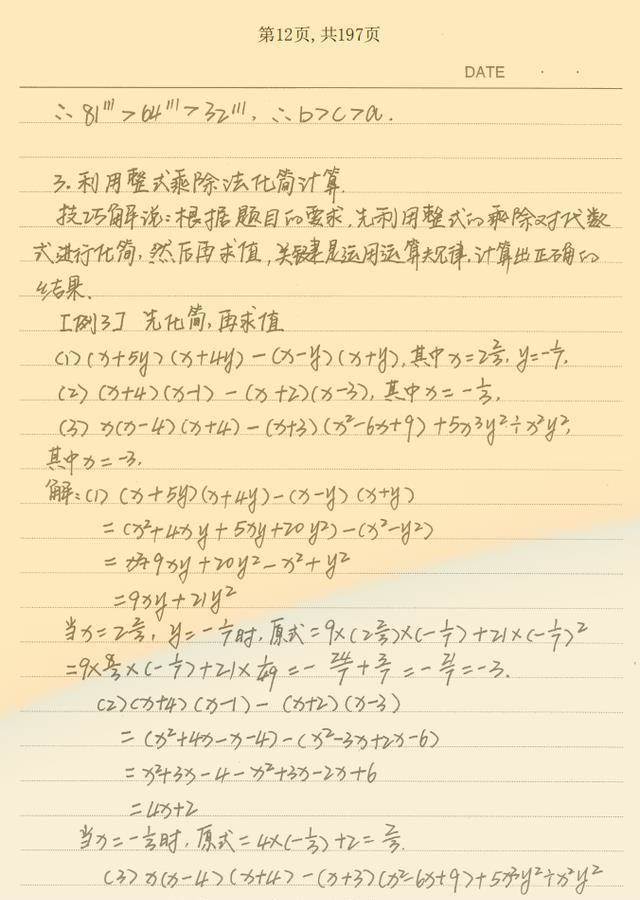 第12页,共197页
DATE · ·
∴ 81¹¹¹ > 64¹¹¹ > 32¹¹¹, ∴ b>c>a.
3.利用整式乘除法化简计算.
技巧解说:根据题目的要求,先利用整式的乘除对代数
式进行化简,然后再求值,关键是运用运算大规律,计算出正确的
结果.
[例3] 先化简,再求值
(1) (x+5y)(x+4y)-(x-y)(x+y),其中x=2⅔, y=-1/7,
(2) (x+4)(x-1)-(x+2)(x-3),其中x=-⅓,
(3) x(x-4)(x+4)-(x+3)(x²-6x+9)+5x³y²÷x²y²,
其中x=-3.
解:(1) (x+5y)(x+4y)-(x-y)(x+y)
=(x²+4xy+5xy+20y²)-(x²-y²)
=x²+9xy+20y²-x²+y²
=9xy+21y²
当x=2⅔, y=-1/7时,原式=9×(2⅔)×(-1/7)+21×(-1/7)²
=9×8/3×(-1/7)+21×1/49=-24/7+3/7=-21/7=-3.
(2)(x+4)(x-1)-(x+2)(x-3)
=(x²+4x-x-4)-(x²-3x+2x-6)
=x²+3x-4-x²+3x-2x+6
=4x+2
当x=-⅓时,原式=4×(-⅓)+2=⅔.
(3) x(x-4)(x+4)-(x+3)(x²-6x+9)+5x³y²÷x²y²